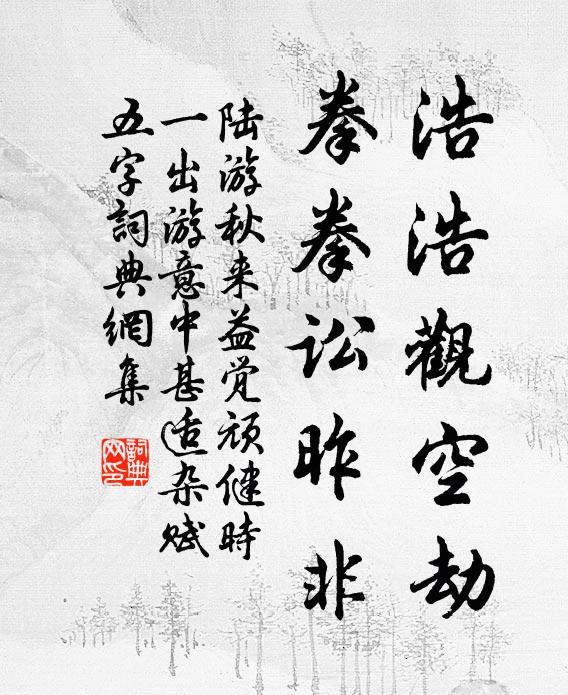 浩浩觀空劫
拳拳訟昨非
陆游秋来益觉顽健時
一出游意中甚适杂赋
五字詞典網集
詞典
网印